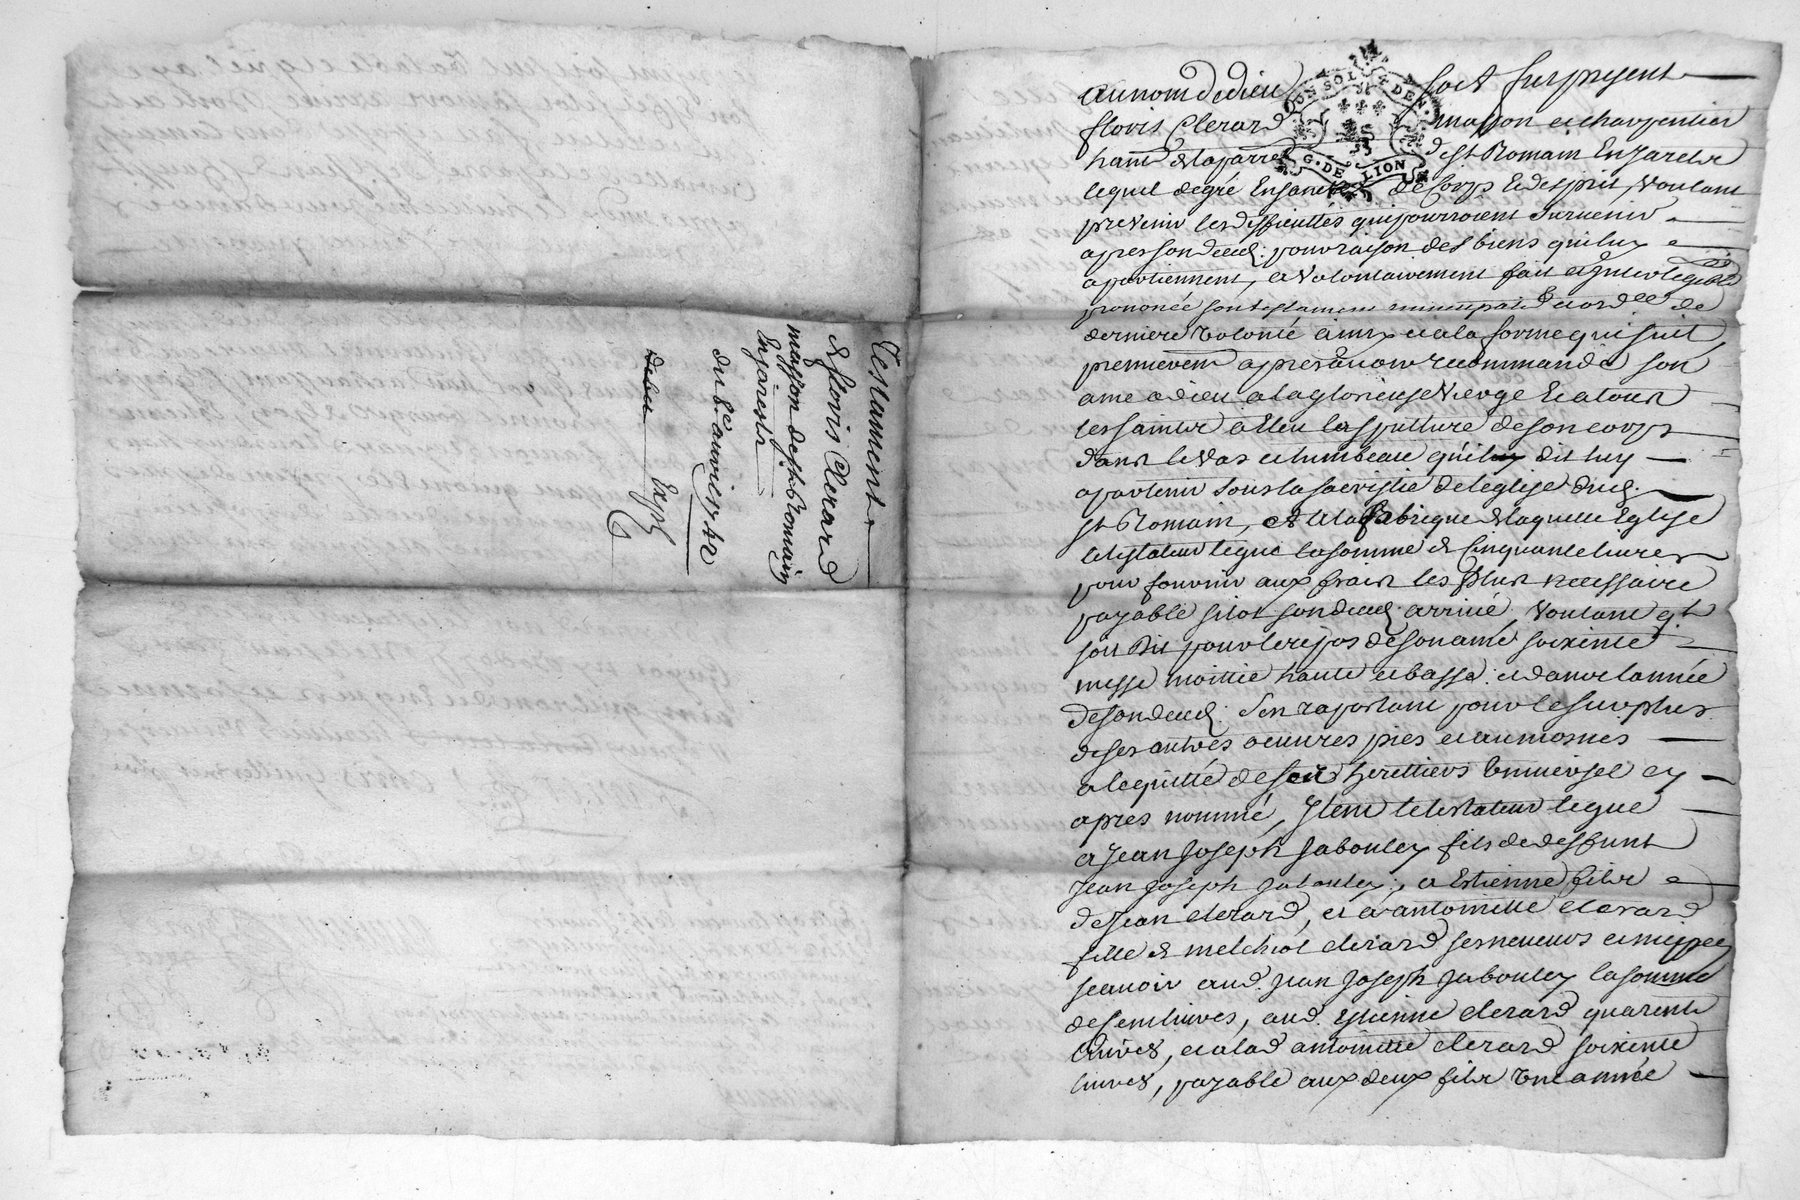 Testament
de floris Clerard
masson de st Romain
En jarests
du 8e auvril 1742
Exp
UN SOL 4 DEN.
G. DE LION
au nom de dieu soit fut present
floris Clerard masson et charpentier
hant de laparre de st Romain En Jarestz
lequel de gré En santé de corps & desprit, voulant
prevenir les difficultés qui pourroient survenir
apres son deced. pour raison des biens qui luy
apartiennent, a volontairement fait
prononcé son testament nuncupatif et ord.ce de
derniere volonté ainsy et a la forme qui suit,
premierem apres avoir recommandé son
ame a dieu a la glorieuse vierge et a tous
les saints a Eleu la sepulture de son corps
dans le vas et tumbeau qu'il luy dit luy
apartenir sous la sacristie de leglise dud.
st Romain, et a la fabrique de laquelle Eglise
le testateur legue la somme de cinquante livres
pour fournir aux frais les plus necessaire
payable sitot son deced arrivé, voulant q't
soit dit pour le repos de son ame soixente
messe moittié haute et basse et dans lannée
de son deced. s'en raportant pour le surplus
de ses autres oeuvres pies et aumosnes
a lequitté de son herettiers universel cy
apres nommé, Item le testateur legue
a Jean Joseph Jabouley fils de deffunt
Jean Joseph Jabouley, a Estienne fils
de Jean clerard, et a antoinette clerard
fille de melchiot clerard ses neveus et niepce
scavoir aud. Jean Joseph Jabouley la somme
de sent livres, aud. Estienne clerard quarente
livres, et a lad antoinette clerard soixente
livres, payable aux deux fils une année